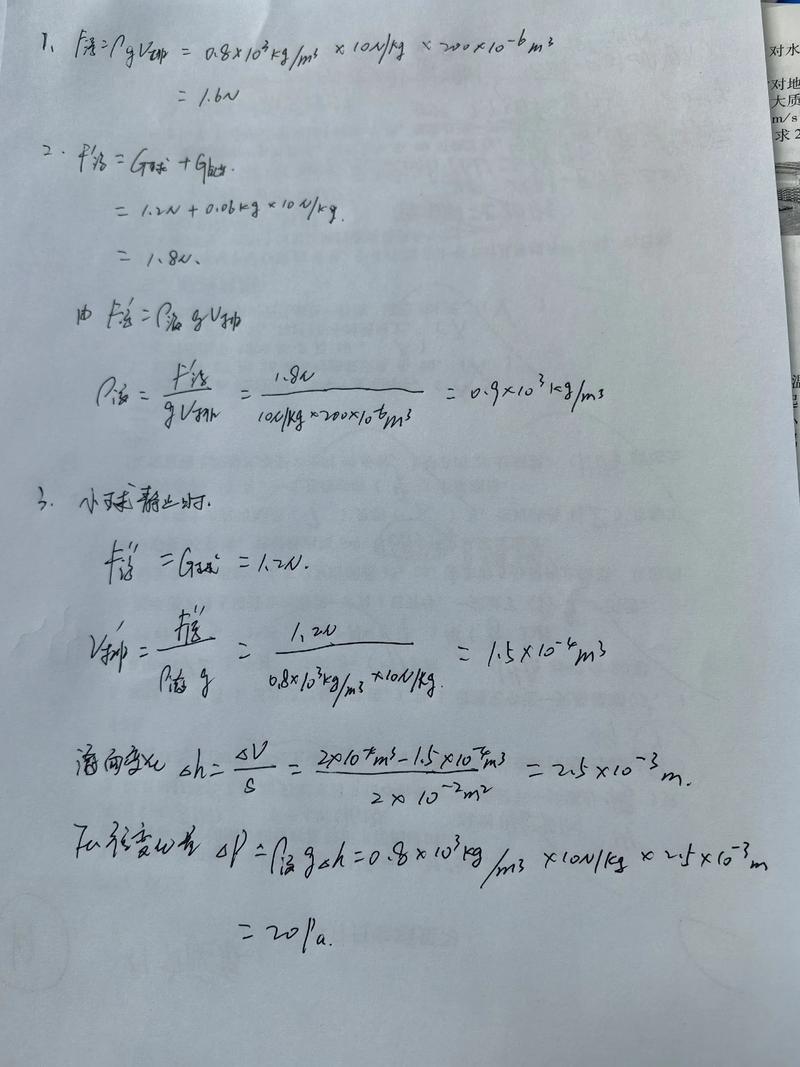 1、F浮=ρgV排 = 0.8×10³kg/m³ ×10N/kg ×200×10⁻⁶m³
= 1.6N
2. F'浮 = G球 + G
= 1.2N + 0.06kg×10N/kg.
= 1.8N.
由 F'浮 = ρ液 g V排
ρ液 = F'浮/gV排 = 1.8N/10N/kg×200×10⁻⁶m³ = 0.9×10³kg/m³
3. 小球静止时.
F''浮 = G球 = 1.2N.
V'排 = F''浮/ρ液 g = 1.2N/0.8×10³kg/m³×10N/kg. = 1.5×10⁻⁴m³
液面变化 Δh = ΔV/S = 2×10⁻⁴m³-1.5×10⁻⁴m³/2×10⁻²m² = 2.5×10⁻³m.
压强变化量 ΔP = ρ液 gΔh = 0.8×10³kg/m³ ×10N/kg × 2.5×10⁻³m
= 20Pa.
对水
对地
大质
m/s
求2
温
起